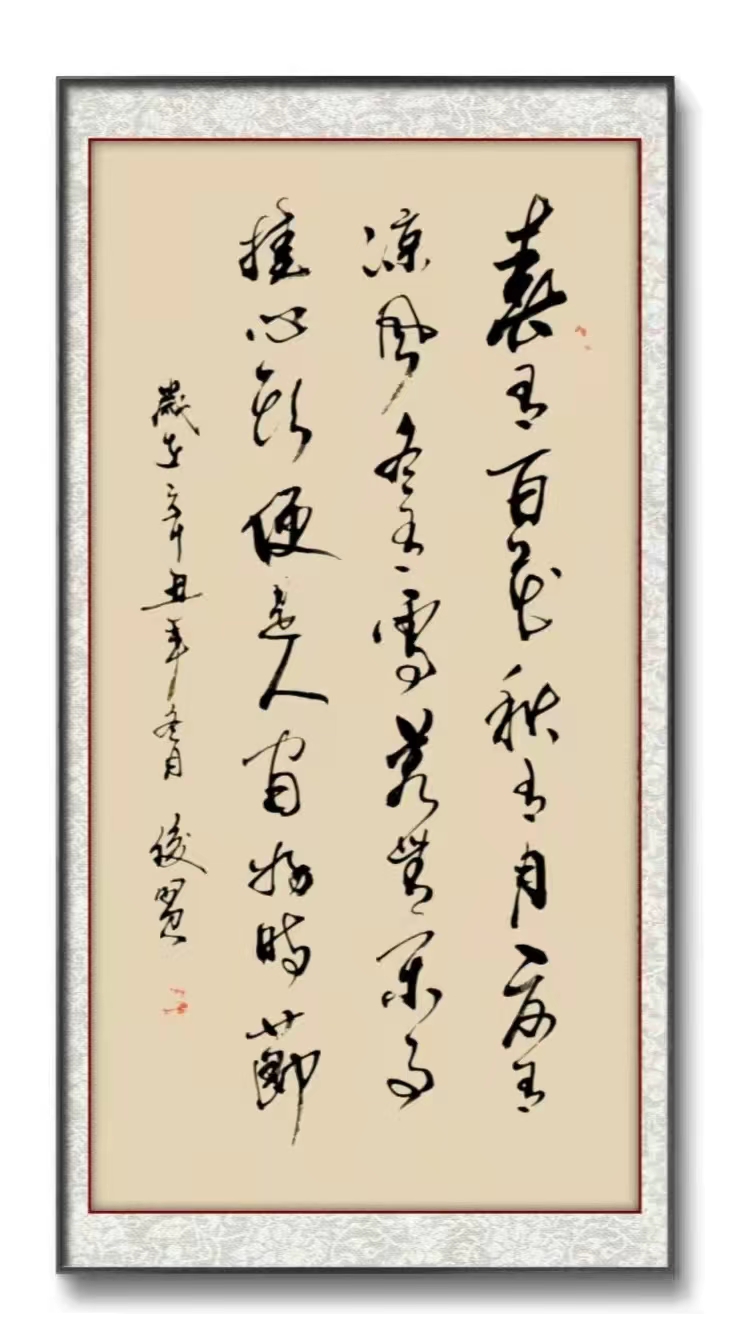 春有百花秋有月夏有
凉風冬有雪若無閑事
挂心頭便是人間好時節
歲在辛丑年冬月 俊賢